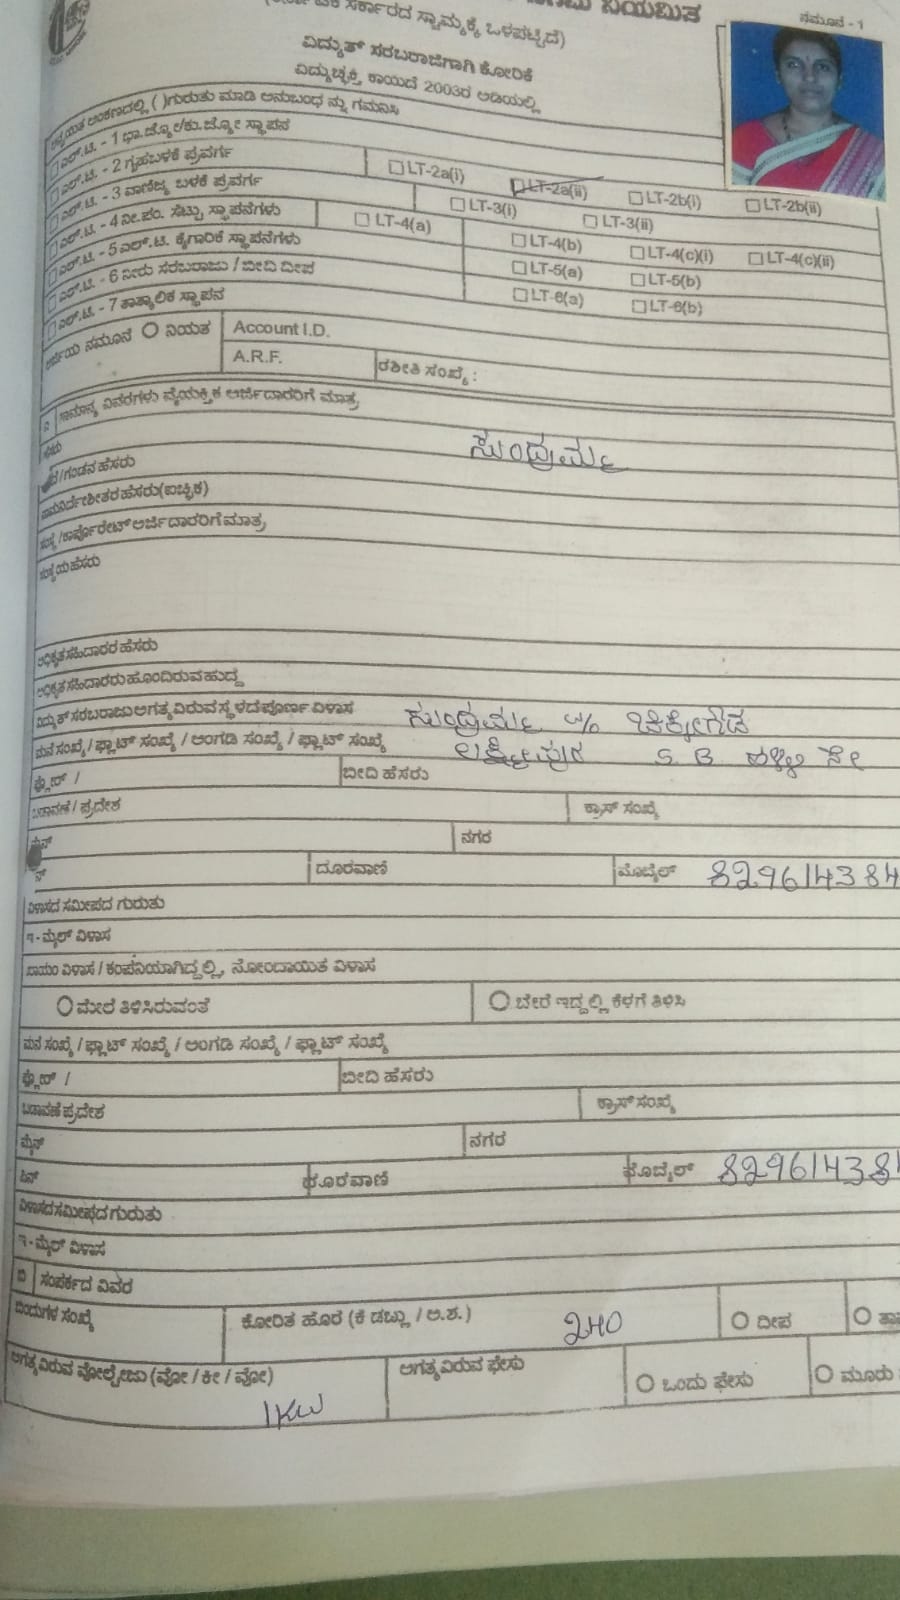 ನಿಯಮಿತ
ನಮೂನೆ - 1
ಸರ್ಕಾರದ ಸ್ವಾಮ್ಯಕ್ಕೆ ಒಳಪಟ್ಟಿದೆ)
ವಿದ್ಯುತ್ ಸರಬರಾಜಿಗಾಗಿ ಕೋರಿಕೆ
ವಿದ್ಯುಚ್ಛಕ್ತಿ ಕಾಯಿದೆ 2003ರ ಅಡಿಯಲ್ಲಿ
ಅಂಕಣದಲ್ಲಿ ( )ಗುರುತು ಮಾಡಿ ಅನುಬಂಧ ನ್ನು ಗಮನಿಸಿ
ಎಲ್.ಟಿ. - 1 ಭಾ.ಜ್ಯೋ/ಕು.ಜ್ಯೋ ಸ್ಥಾಪನ
ಎಲ್.ಟಿ. - 2 ಗೃಹಬಳಕೆ ಪ್ರವರ್ಗ LT-2a(i) LT-2a(ii) LT-2b(i) LT-2b(ii)
ಎಲ್.ಟಿ. - 3 ವಾಣಿಜ್ಯ ಬಳಕೆ ಪ್ರವರ್ಗ LT-3(i) LT-3(ii)
ಎಲ್.ಟಿ. - 4 ನೀ.ಪಂ. ಸೆಟ್ಟು ಸ್ಥಾಪನೆಗಳು LT-4(a) LT-4(b) LT-4(c)(i) LT-4(c)(ii)
ಎಲ್.ಟಿ. - 5 ಎಲ್.ಟಿ. ಕೈಗಾರಿಕೆ ಸ್ಥಾಪನೆಗಳು LT-5(a) LT-5(b)
ಎಲ್.ಟಿ. - 6 ನೀರು ಸರಬರಾಜು / ಬೀದಿ ದೀಪ LT-6(a) LT-6(b)
ಎಲ್.ಟಿ. - 7 ತಾತ್ಕಾಲಿಕ ಸ್ಥಾಪನ
ಅರ್ಜಿಯ ನಮೂನೆ ನಿಯತ Account I.D.
A.R.F. ರಶೀತಿ ಸಂಖ್ಯೆ :
ಸಾಮಾನ್ಯ ವಿವರಗಳು ವೈಯಕ್ತಿಕ ಅರ್ಜಿದಾರರಿಗೆ ಮಾತ್ರ
ಹೆಸರು ಸುಂದ್ರಮ್ಮ
/ಗಂಡನ ಹೆಸರು
ನಾಮನಿರ್ದೇಶಿತರ ಹೆಸರು(ಐಚ್ಛಿಕ)
ಸಂಸ್ಥೆ /ಕಾರ್ಪೊರೇಟ್ ಅರ್ಜಿದಾರರಿಗೆ ಮಾತ್ರ
ಸಂಸ್ಥೆಯ ಹೆಸರು
ಅಧಿಕೃತ ಸಹಿದಾರರ ಹೆಸರು
ಅಧಿಕೃತ ಸಹಿದಾರರು ಹೊಂದಿರುವ ಹುದ್ದೆ
ವಿದ್ಯುತ್ ಸರಬರಾಜು ಅಗತ್ಯವಿರುವ ಸ್ಥಳದ ಪೂರ್ಣ ವಿಳಾಸ ಸುಂದ್ರಮ್ಮ w/o ಚಿಕ್ಕೇಗೌಡ
ಮನೆ ಸಂಖ್ಯೆ / ಫ್ಲಾಟ್ ಸಂಖ್ಯೆ / ಅಂಗಡಿ ಸಂಖ್ಯೆ / ಫ್ಲಾಟ್ ಸಂಖ್ಯೆ ಲಕ್ಷ್ಮೀಪುರ S. B ಹಳ್ಳಿ
ಫ್ಲೋರ್ / ಬೀದಿ ಹೆಸರು
ಬಡಾವಣೆ / ಪ್ರದೇಶ ಕ್ರಾಸ್ ಸಂಖ್ಯೆ
ನಗರ
ದೂರವಾಣಿ ಮೊಬೈಲ್ 829614384
ವಿಳಾಸದ ಸಮೀಪದ ಗುರುತು
ಇ - ಮೈಲ್ ವಿಳಾಸ
ಖಾಯಂ ವಿಳಾಸ / ಕಂಪನಿಯಾಗಿದ್ದಲ್ಲಿ, ನೋಂದಾಯಿತ ವಿಳಾಸ
ಮೇಲೆ ತಿಳಿಸಿರುವಂತೆ ಬೇರೆ ಇದ್ದಲ್ಲಿ ಕೆಳಗೆ ತಿಳಿಸಿ
ಮನೆ ಸಂಖ್ಯೆ / ಫ್ಲಾಟ್ ಸಂಖ್ಯೆ / ಅಂಗಡಿ ಸಂಖ್ಯೆ / ಫ್ಲಾಟ್ ಸಂಖ್ಯೆ
ಫ್ಲೋರ್ / ಬೀದಿ ಹೆಸರು
ಬಡಾವಣೆ ಪ್ರದೇಶ ಕ್ರಾಸ್ ಸಂಖ್ಯೆ
ಮೈನ್ ನಗರ
ಪಿನ್ ದೂರವಾಣಿ ಮೊಬೈಲ್ 82961438
ವಿಳಾಸದ ಸಮೀಪದ ಗುರುತು
ಇ - ಮೈಲ್ ವಿಳಾಸ
ಬಿ ಸಂಪರ್ಕದ ವಿವರ
ಬಿಂದುಗಳ ಸಂಖ್ಯೆ ಕೋರಿತ ಹೊರೆ (ಕೆ ಡಬ್ಲು / ಅ.ಶ.) 240 ದೀಪ
ಅಗತ್ಯವಿರುವ ವೋಲ್ಟೇಜು (ವೋ / ಕೀ / ವೋ) 1KW ಅಗತ್ಯವಿರುವ ಫೇಸು ಒಂದು ಫೇಸು ಮೂರು